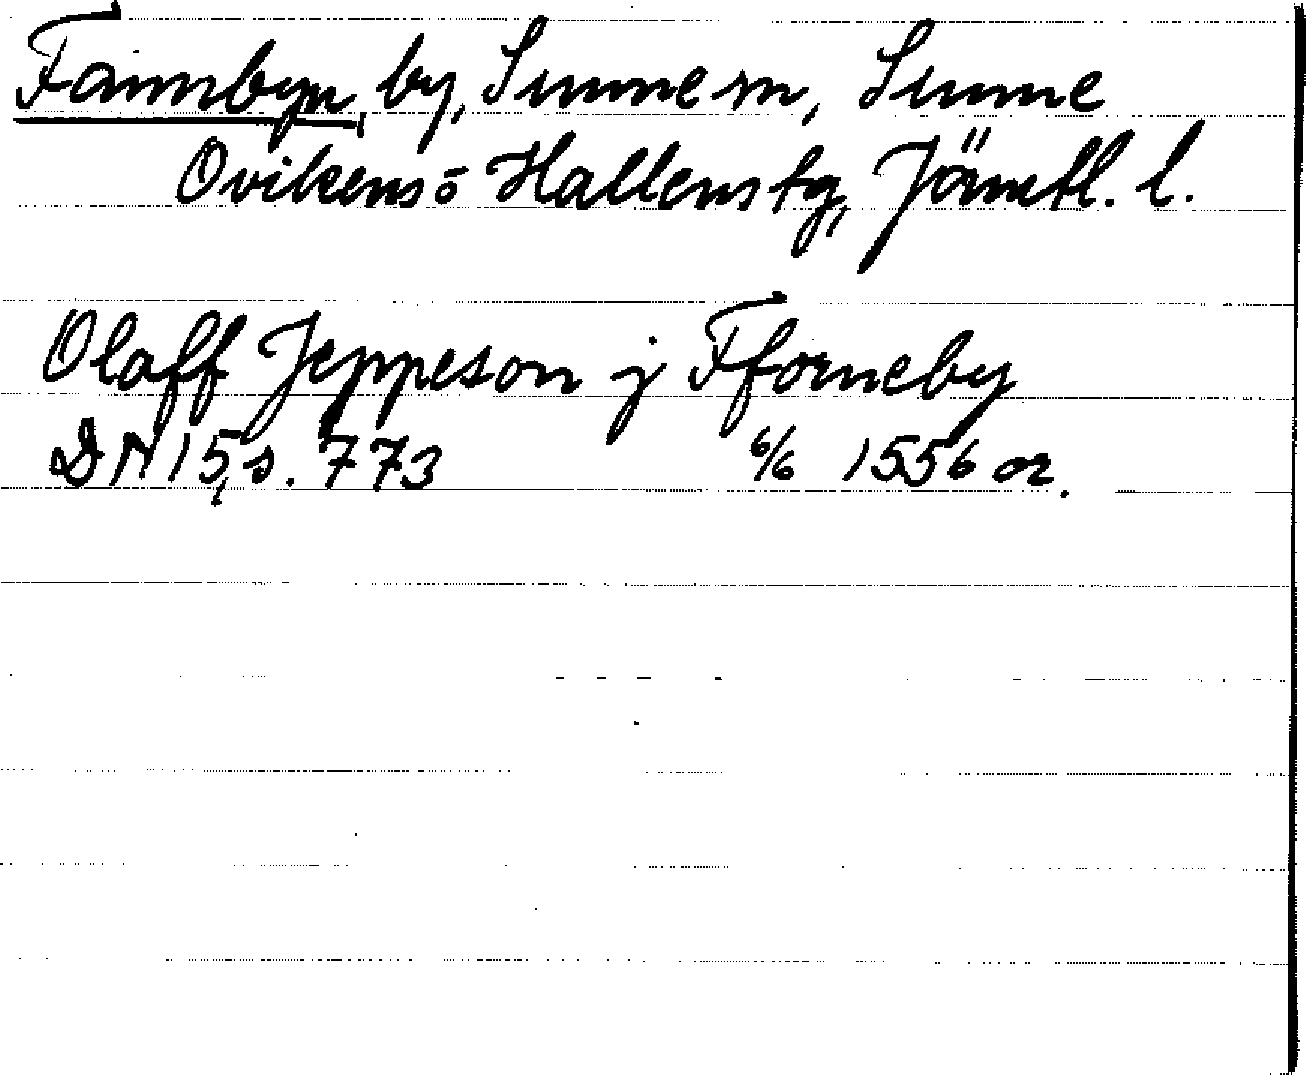 Fannbyn, by, Sunne sn, Sunne
Ovikens o Hallens tg, Jämtl. l.
Olaff Jeppeson j Fforneby
DN 15, s. 773 6/6 1556 or.